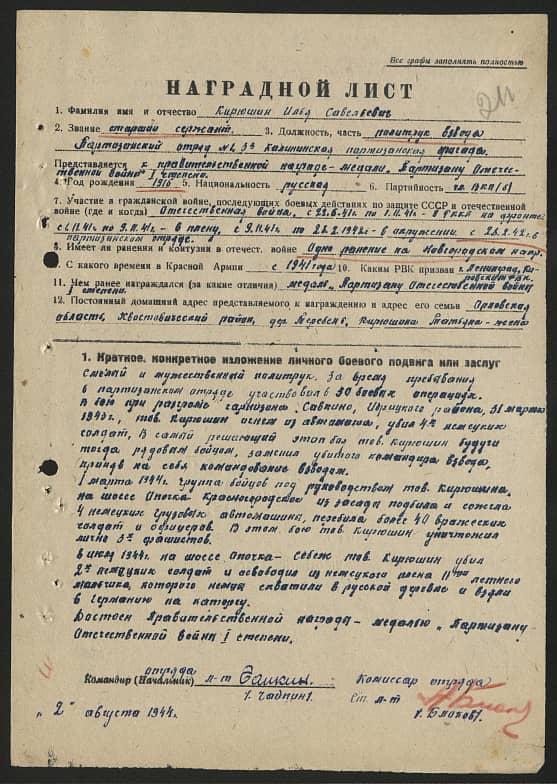 Все графы заполнять полностью
НАГРАДНОЙ ЛИСТ
1. Фамилия имя и отчество Кирюшин Илья Савельевич
2. Звание старший сержант. 3. Должность, часть политрук взвода
Партизанский отряд №2, 3й калининская партизанская бригада.
Представляется к правительственной награде-медали „Партизану Отечес-
твенной войны" I степени.
4. Год рождения 1910 5. Национальность русский 6. Партийность чл ВКП(б)
7. Участие в гражданской войне, последующих боевых действиях по защите СССР и отечественной
войне (где и когда) Отечественная война, с 22.6.41г. по 1.11.41г - в РККА на фронте,
с 1.11.41г по 9.11.41г - в плену, с 9.11.41г по 28.2.1942г - в окружении, с 28.2.42г в
партизанском отряде.
8. Имеет ли ранения и контузии в отечест. войне Одно ранение на Новгородском напр.
С какого времени в Красной Армии с 1941 года 10. Каким РВК призван г. Ленинград, Ки-
ровский РВК.
11. Чем ранее награждался (за какие отличия) медаль „Партизану Отечественной войны
II степени.
12. Постоянный домашний адрес представляемого к награждению и адрес его семьи Орловская
область, Хвостовический район, дер. Теребень, Кирюшина Татьяна - жена
1. Краткое, конкретное изложение личного боевого подвига или заслуг
Смелый и мужественный политрук. За время пребывания
в партизанском отряде участвовал в 30 боевых операциях.
В бою при разгроме гарнизона Савкино, Идрицкого района, 31 марта
1943г, тов. Кирюшин огнем из автомата, убил 4х немецких
солдат, В самый решающий этап боя тов. Кирюшин будучи
тогда рядовым бойцом, заменил убитого командира взвода,
приняв на себя командование взводом.
1 марта 1944г. группа бойцов под руководством тов. Кирюшина.
на шоссе Опочка Красногородское из засады подбила и сожгла
4 немецких грузовых автомашины, перебила более 40 вражеских
солдат и офицеров. В этом бою тов. Кирюшин уничтожил
лично 5х фашистов.
В июле 1944г. на шоссе Опочка - Себеж тов. Кирюшин убил
2х немецких солдат и освободил из немецкого плена 11ти летнего
мальчика, которого немцы схватили в русской деревне и везли
в Германию на каторгу.
Достоен Правительственной награды - медалью „Партизану
Отечественной войны I степени.
отряда
Командир (Начальник) л-т
Комиссар отряда
Ст. л-т
„2" августа 1944г.